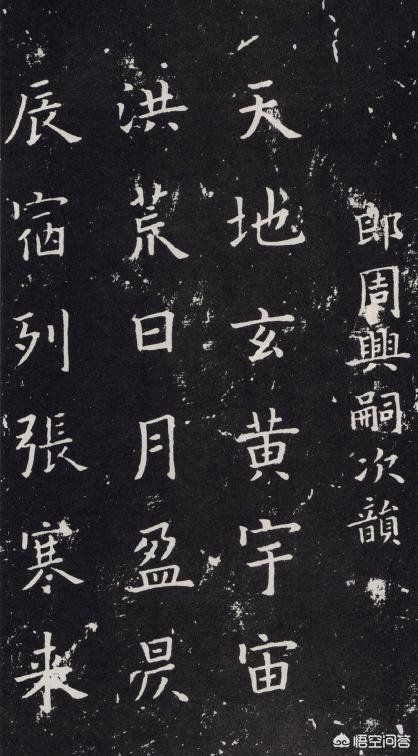 郎周興嗣次韻
天地玄黄宇宙
洪荒日月盈昃
辰宿列張寒来
悟空问答